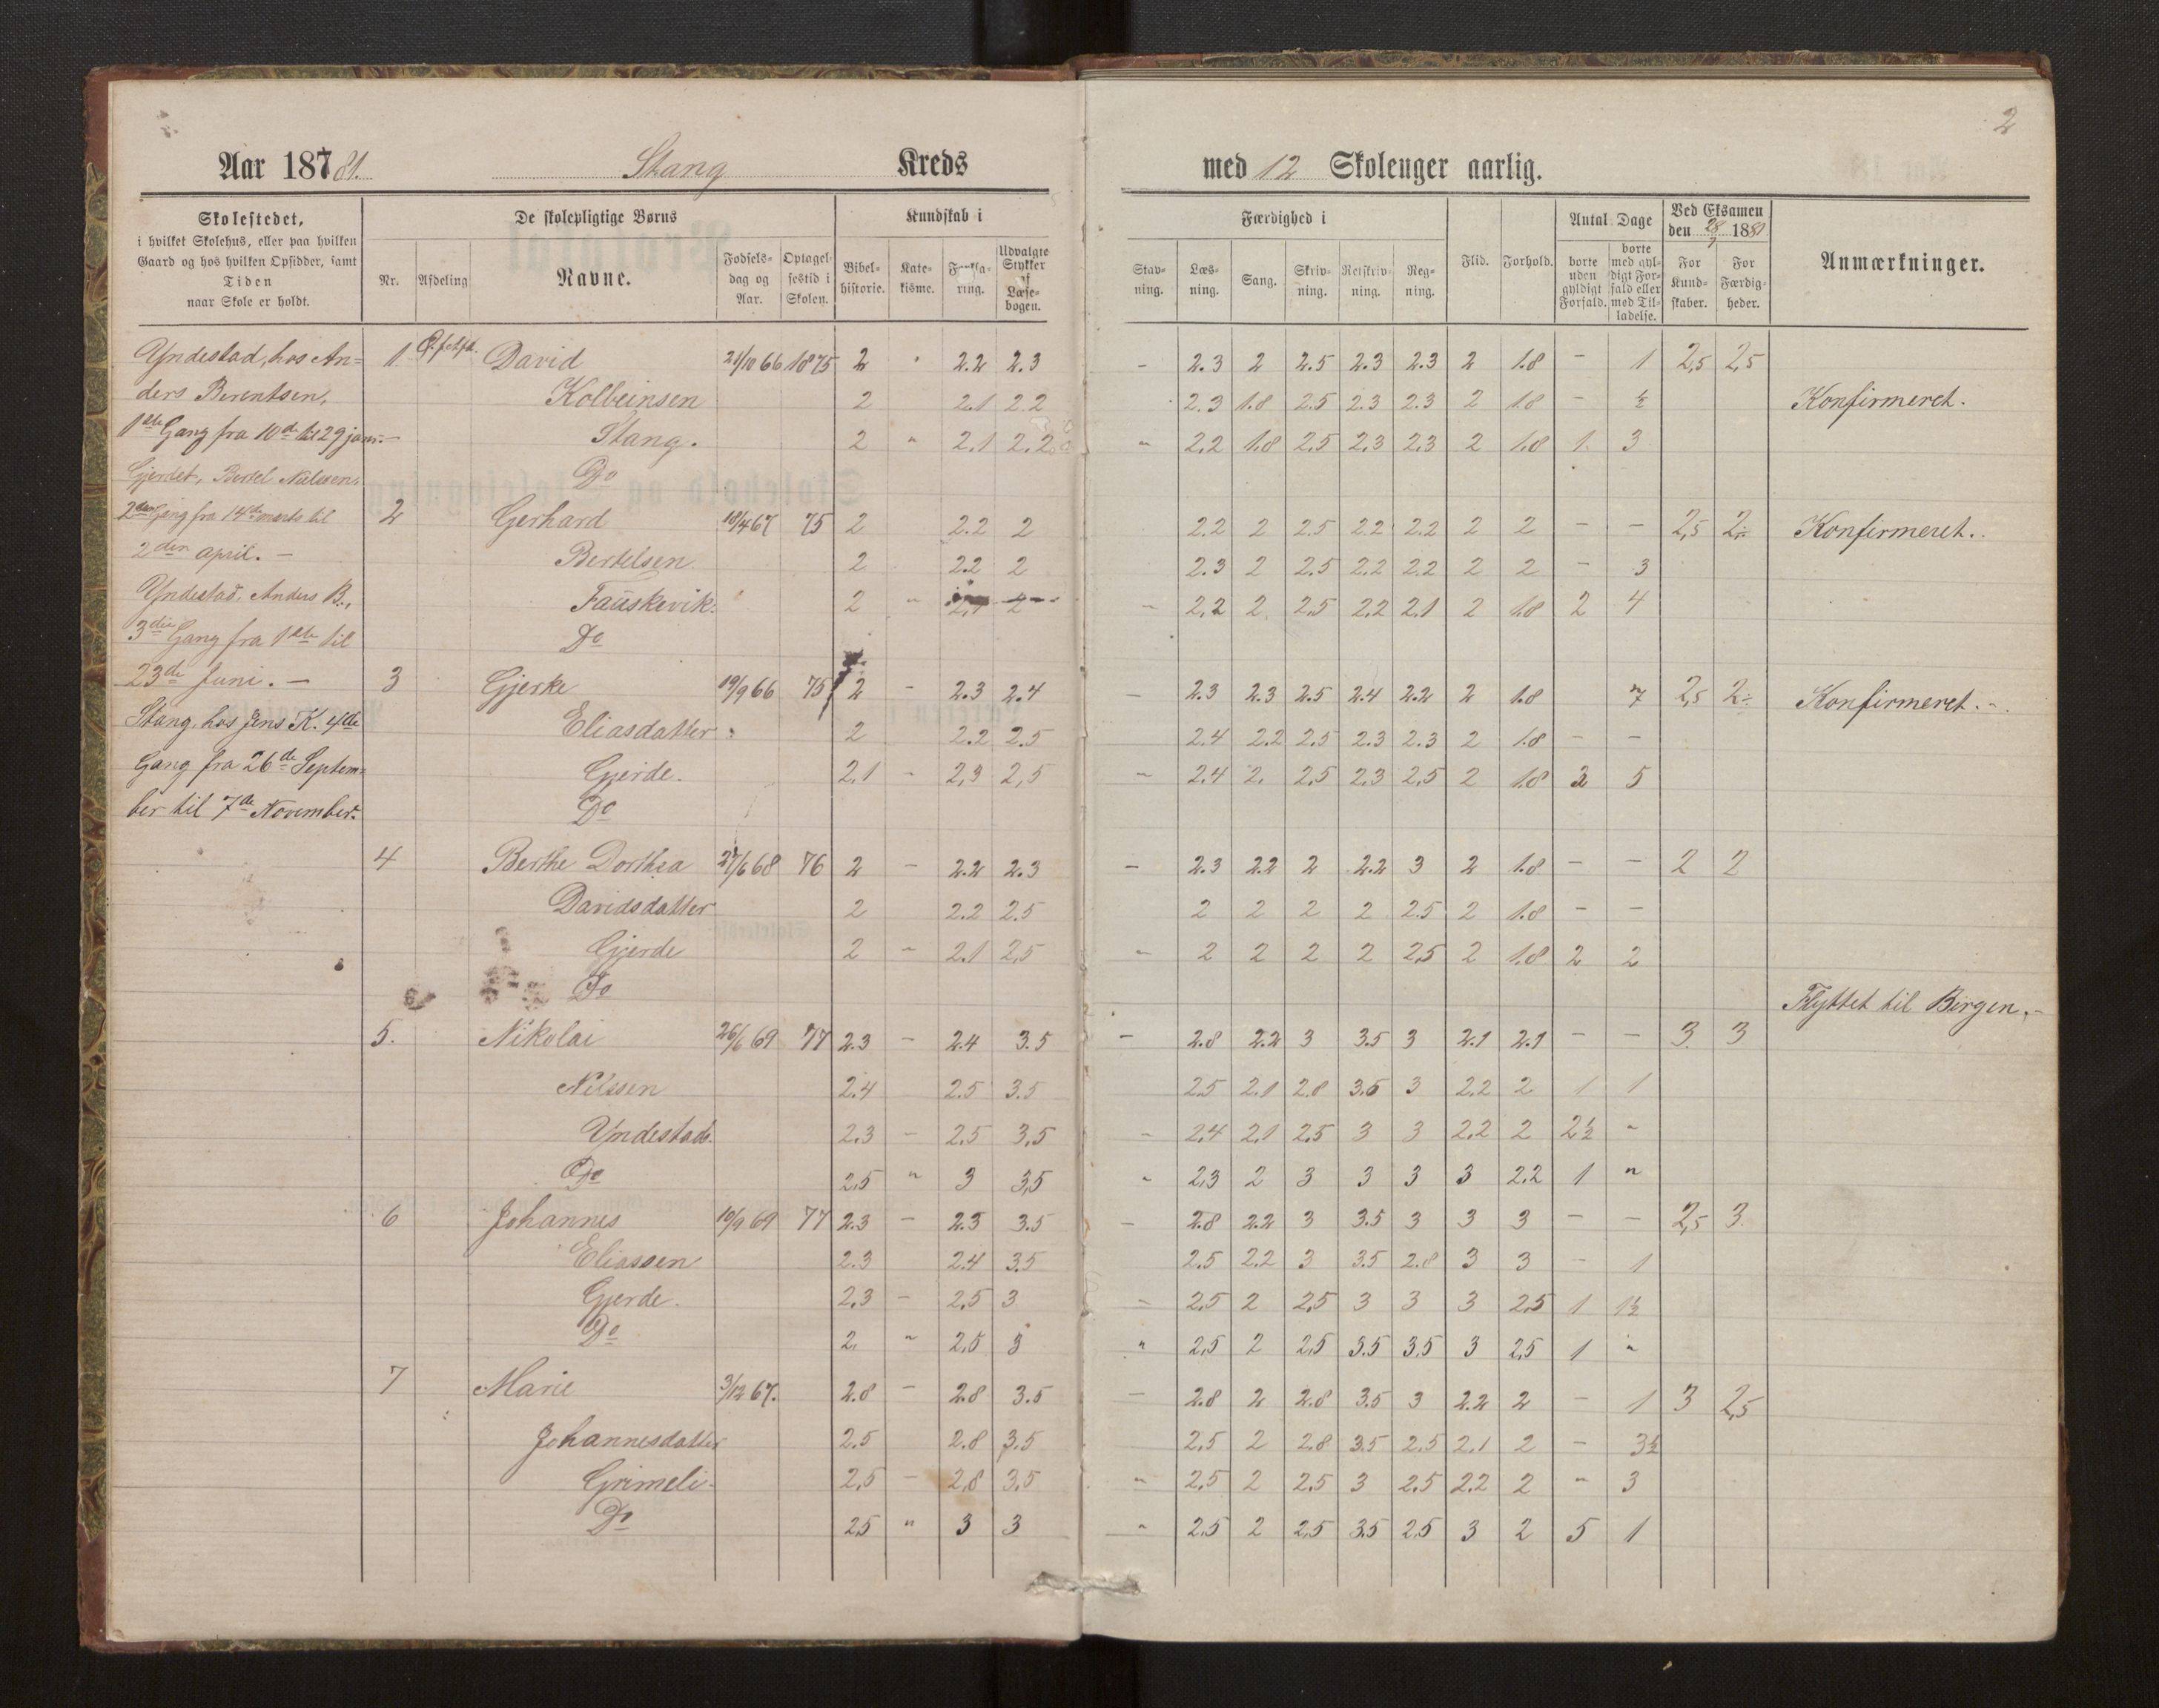 2
Aar 187 81. Stang Kreds med 12 Skoleuger aarlig.
Skolestedet, i hvilket Skolehus, eller paa hvilken Gaard og hos hvilken Opsidder, samt Tiden naar Skole er holdt.
De skolepligtige Børns
Nr. Afdeling Navne. Fødsels- dag og Aar. Optagel- sestid i Skolen.
Kundskab i
Bibel- historie. Kate- kisme. Forkla- ring. Udvalgte Stykker af Læse- bogen.
Færdighed i
Stav- ning. Læs- ning. Sang. Skriv- ning. Retskriv- ning. Reg- ning.
Flid. Forhold.
Antal Dage
borte uden gyldigt Forfald. borte med gyl- digt For- fald eller med Til- ladelse.
Ved Eksamen den 28/7 1881
For Kund- skaber. For Færdig- heder.
Anmærkninger.
Yndestad, hos An= 1. David 21/10 66 1875 2 " 2.2 2.3 - 2.3 2 2.5 2.3 2.3 2 1.8 - 1 2,5 2,5
ders Berentsen, Kolbeinsen 2 2.1 2.2 2.3 1.8 2.5 2.3 2.3 2 1.8 - ½ Konfirmeret.
1ste Gang fra 10de til 29 jan. - Stang. 2 " 2.1 2.2 " 2,2 1,8 2,5 2,3 2,3 2 1,8 1. 3
Gjerdet, Bertel Nilssen, Do
2den Gang fra 14de marts til 2 Gerhard 18/4 67 75 2 2.2 2 2.2 2 2.5 2.2 2.2 2 2 - - 2,5 2.- Konfirmeret.
2den april. - Bertelsen 2 2.2 2 2.3 2 2.5 2.2 2.2 2 2 - 3
Yndestad, Anders B., Fauskevik. 2 " 2,1 2 - 2,2 2. 2,5 2,2 2,1 2 1,8 2 4
3die Gang fra 1ste til Do
23de Juni. - 3 Gjerke 19/9 66 75 2 - 2.3 2.4 - 2.3 2.3 2.5 2.4 2.2 2 1.8 7 2,5 2.- Konfirmeret. -
Stang, hos Jens K. 4de Eliasdatter 2 2.2 2.5 2.4 2.2 2.5 2.3 2.3 2 1.8 - -
Gang fra 26de Septem= Gjerde. 2.1 - 2,3 2,5 - 2.4 2. 2,5 2,3 2,5 2 1,8 3 5
ber til 7de November. Do
4 Berthe Dorthea 27/6 68 76 2 - 2.2 2.3 - 2.3 2.2 2 2.2 3 2 1.8 - - 2 2
Davidsdatter 2 2.2 2.5 2 2 2 2 2.5 2 1.8 - -
Gjerde 2 - 2.1 2,5 - 2 2 2 2 2,5 2 1,8 2 2
Do
Flyttet til Bergen. -
5. Nikolai 26/6 69 77 2.3 - 2.4 3.5 - 2.8 2.2 3 3.5 3 2.1 2.1 - - 3. 3
Nilssen 2.4 2.5 3.5 2.5 2.1 2.8 3.5 3 2.2 2 1 1
Yndestad. 2.3 - 2.5 3,5 - 2,4 2.1 2.5 3 3 2.2 2 2½ "
Do 2,5 " 3 3,5 " 2,3 2 3 3 3 3 2.2 1 "
6 Johannes 10/9 69 77 2.3 - 2.3 3.5 - 2.8 2.2 3 3.5 3 3 3 - - 2,5 3.
Eliassen 2.3 2.4 3.5 2.5 2.2 3 3.5 2.8 3 3 - 1
Gjerde. 2,3 - 2,5 3 - 2,5 2 2,5 3 3 3 2,5 1 1½
Do 2. " 2,5 3 " 2,5 2 2,5 3.5 3,5 3 2,5 1 "
7 Marie 3/12 67. 2.8 - 2.8 3.5 - 2.8 2 2.8 3.5 3 2.2 2 - 1 3 2,5
Johannesdatter 2.5 2.8 3.5 2.5 2 2.8 3.5 2.5 2.1 2 - 3½
Grimeli. 2,5 - 2,8 3,5 " 2,5 2 2.5 3 2.5 2.2 2 " 3
Do 2,5 " 3 3 " 2,5 2 2,5 3.5 2,5 3 2 5 1